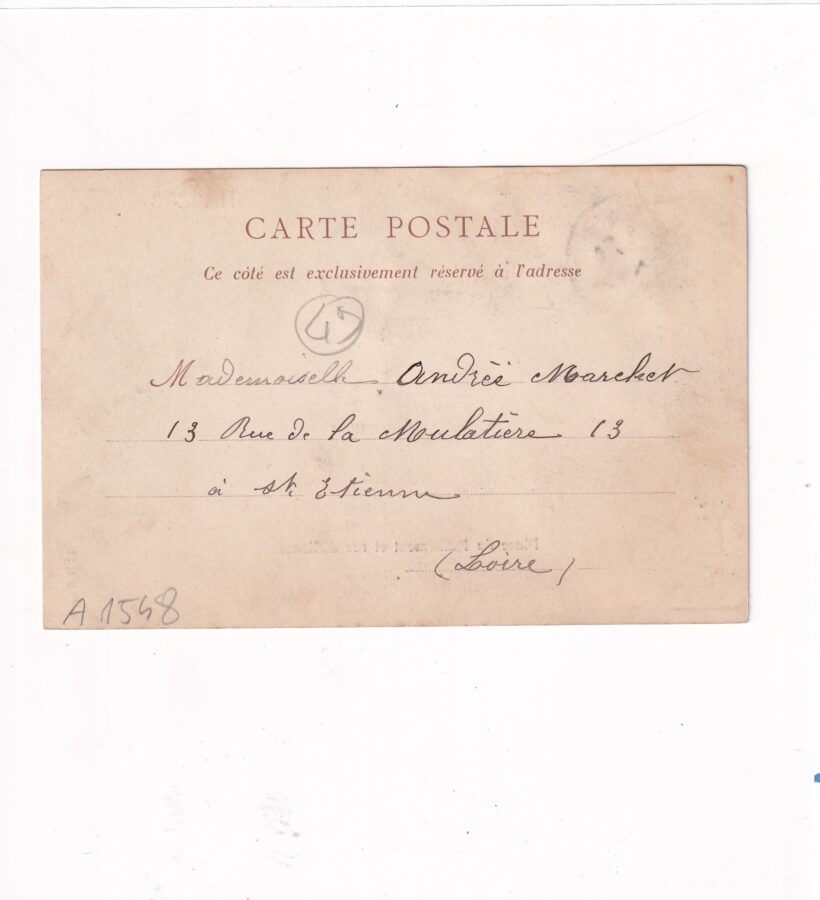 CARTE POSTALE
Ce côté est exclusivement réservé à l'adresse
49
Mademoiselle Andrée Marchet
13 Rue de la Mulatière 13
à St. Etienne
(Loire)
A 1548